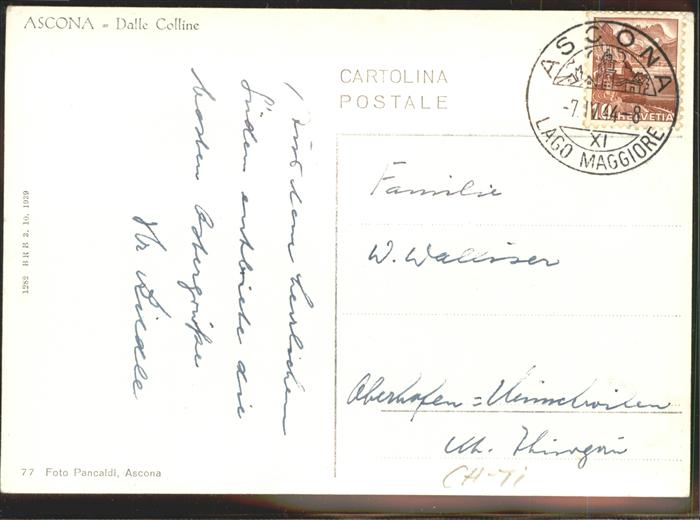 ASCONA - Dalle Colline
CARTOLINA
POSTALE
ASCONA
-7.IV.44-8
XI
LAGO MAGGIORE
10 HELVETIA
Aus dem herrlichen
Süden entbiete die
besten Ostergrüße
Familie
W. Walliser
Oberhofen =
Kt. Thurgau
CH-TI
1282 BRB 3. 10. 1939
77 Foto Pancaldi, Ascona